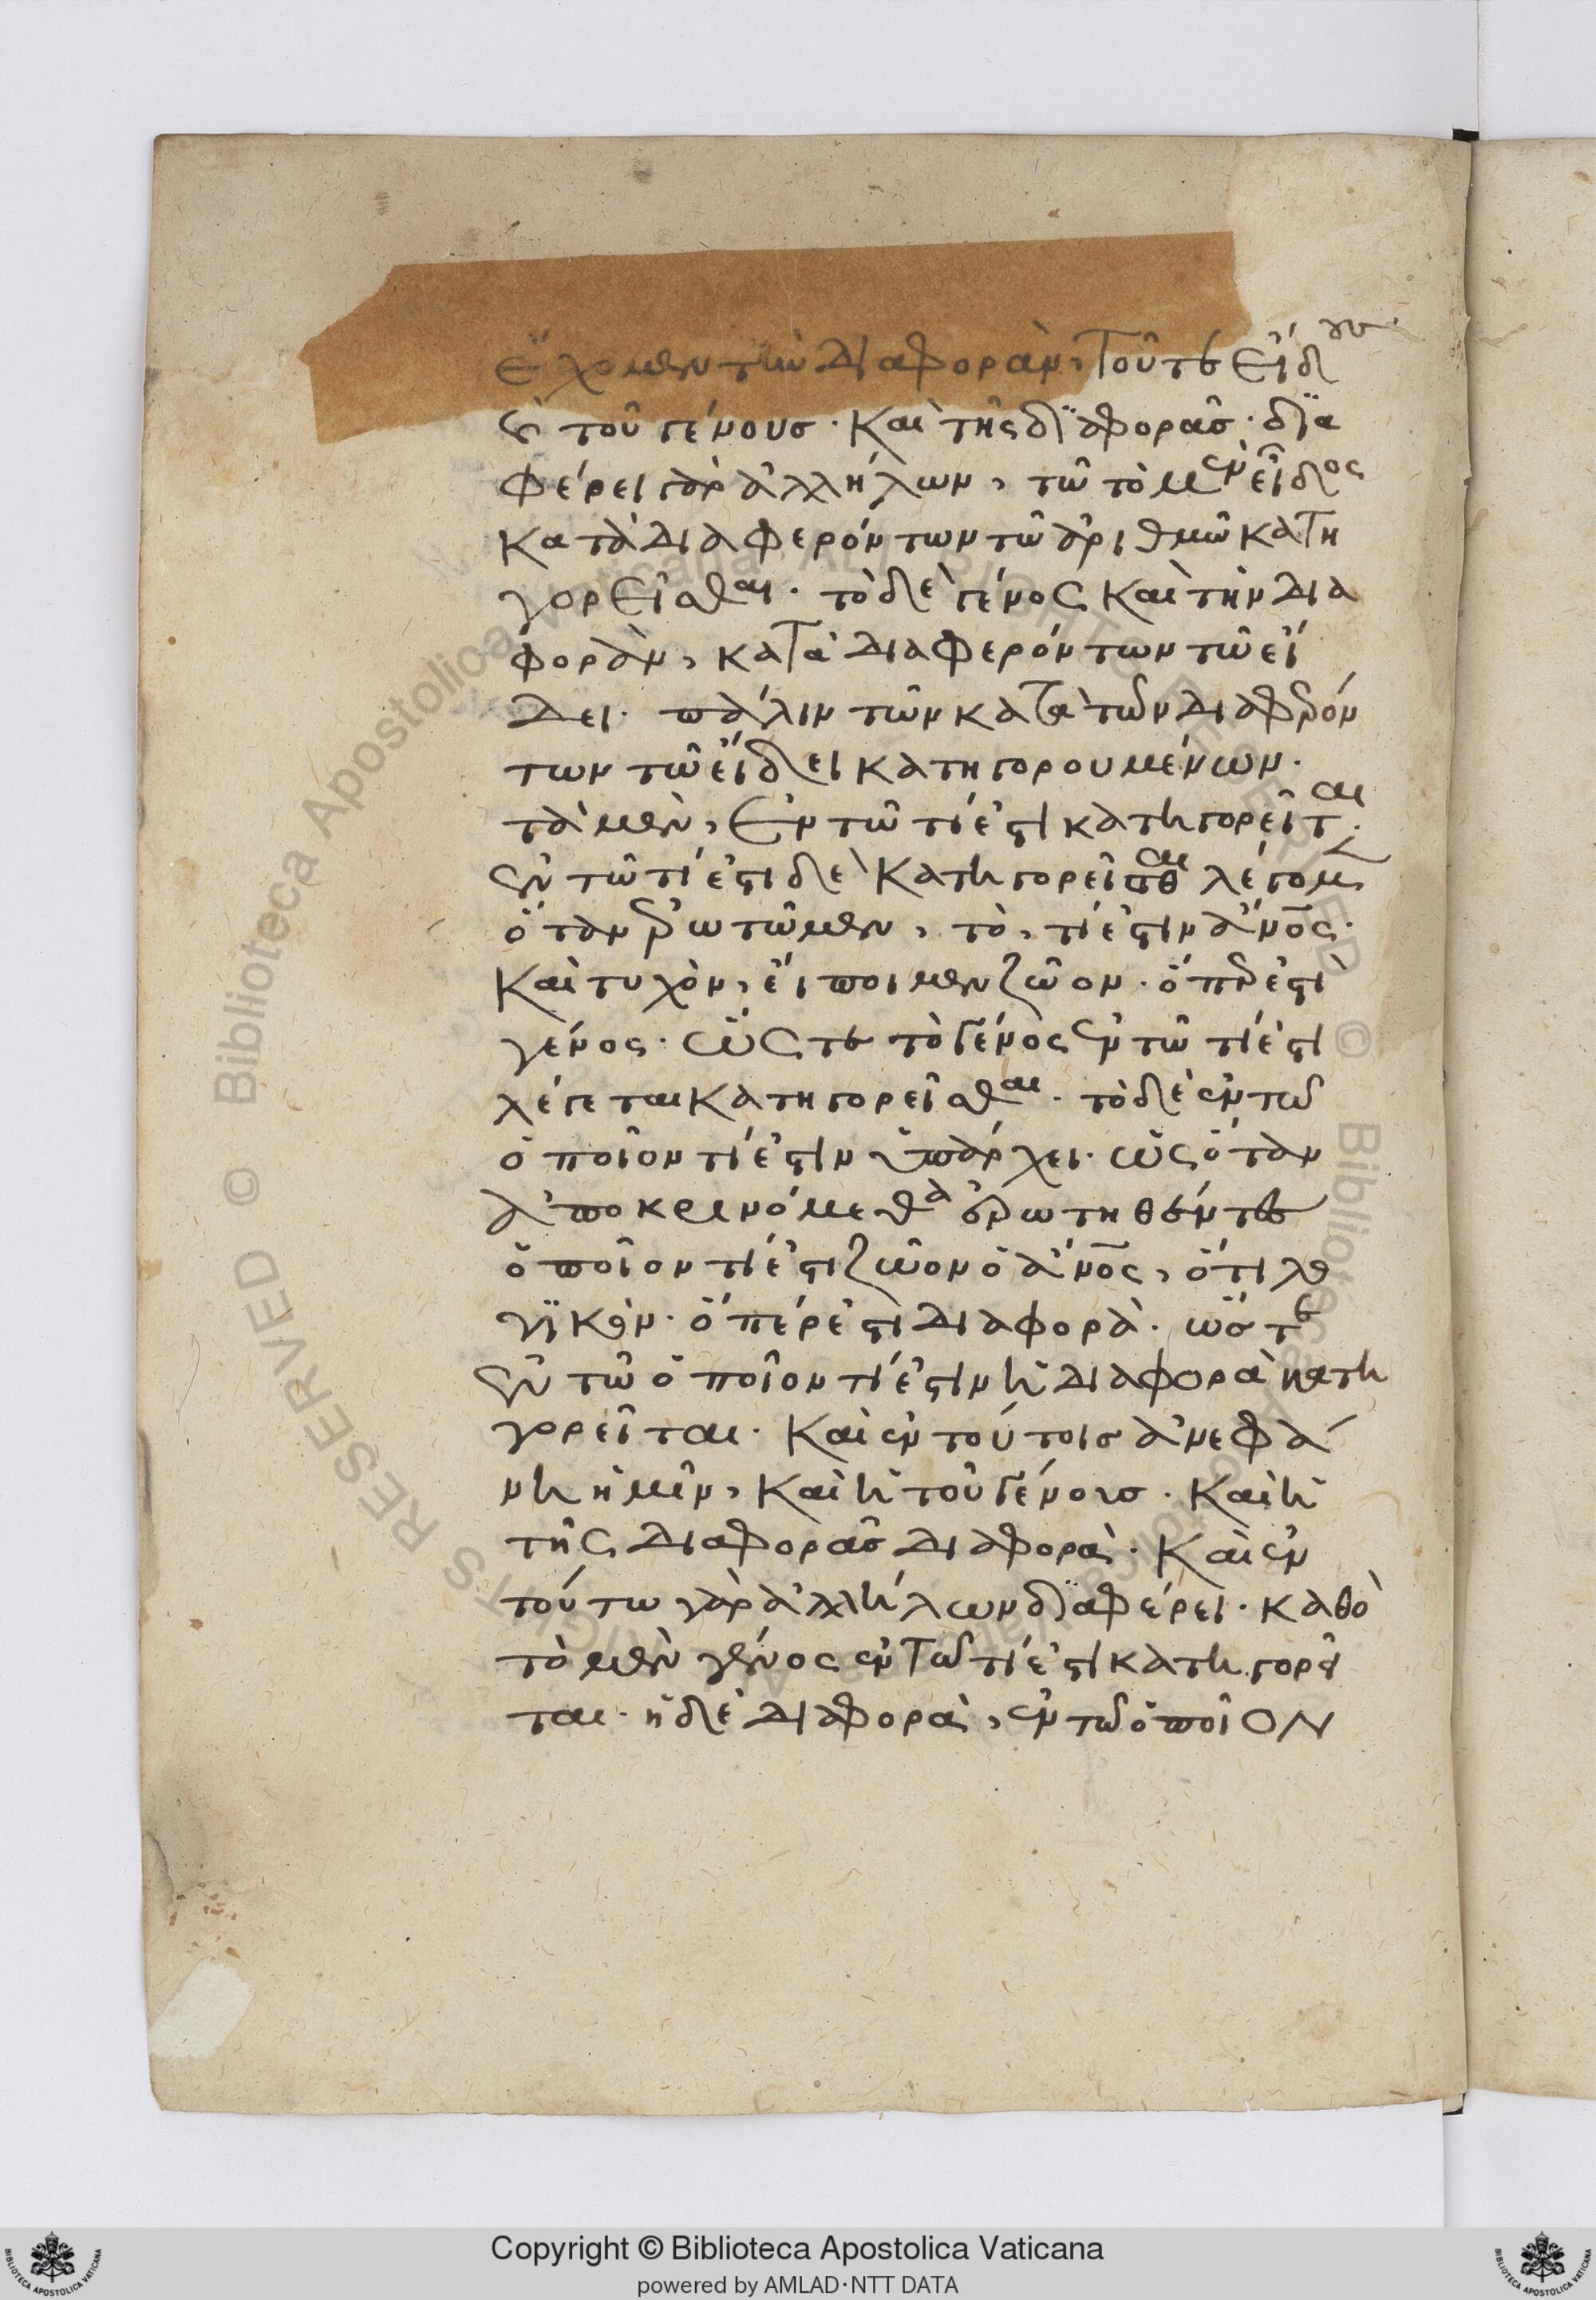 ἔχομεν τὴν διαφορὰν, τοῦ τε εἴδους
καὶ τοῦ γένους· καὶ τῆς διαφορᾶς· δια
φέρει γὰρ ἀλλήλων, τῶ τὸ μὲν εἶδος
κατὰ διαφερόντων τῶ ἀριθμῶ κατη
γορεῖσθαι· τὸ δὲ γένος καὶ τὴν δια
φορὰν, κατὰ διαφερόντων τῶ εἴ
δει· πάλιν τῶν κατὰ τῶν διαφερόν
των τῶ εἴδει κατηγορουμένων·
τὰ μὲν, ἐν τῶ τί ἐστι κατηγορεῖται·
ἐν τῶ τί ἐστι δὲ κατηγορεῖσθαι λέγομεν
ὅταν ἐρωτῶμεν, τὸ, τί ἐστιν ἄνος·
καὶ τυχὸν, εἴποιμεν ζῶον· ὅπερ ἐστὶ
γένος· ὥστε τὸ γένος ἐν τῶ τί ἐστι
λέγεται κατηγορεῖσθαι· τὸ δὲ ἐν τῶ
ὁποῖον τί ἐστιν ὑπάρχει· ὡς ὅταν
ἀποκρινόμεθα ἐρωτηθέντες
ὁποῖον τί ἐστι ζῶον ὁ ἄνος, ὅτι λο
γικόν· ὅπέρ ἐστι διαφορὰ· ὥστε
ἐν τῶ ὁποῖον τί ἐστιν ἡ διαφορὰ κατη
γορεῖται· καὶ ἐν τούτοις ἀνεφά
νη ἡμῖν, καὶ ἡ τοῦ γένους· καὶ ἡ
τῆς διαφορᾶς διαφορὰ· καὶ ἐν
τούτω γὰρ ἀλλήλων διαφέρει· καθὸ
τὸ μὲν γένος ἐν τῶ τί ἐστι κατηγορεῖ
ται· ἡ δὲ διαφορὰ, ἐν τῶ ὁποῖον
Copyright © Biblioteca Apostolica Vaticana
powered by AMLAD·NTT DATA